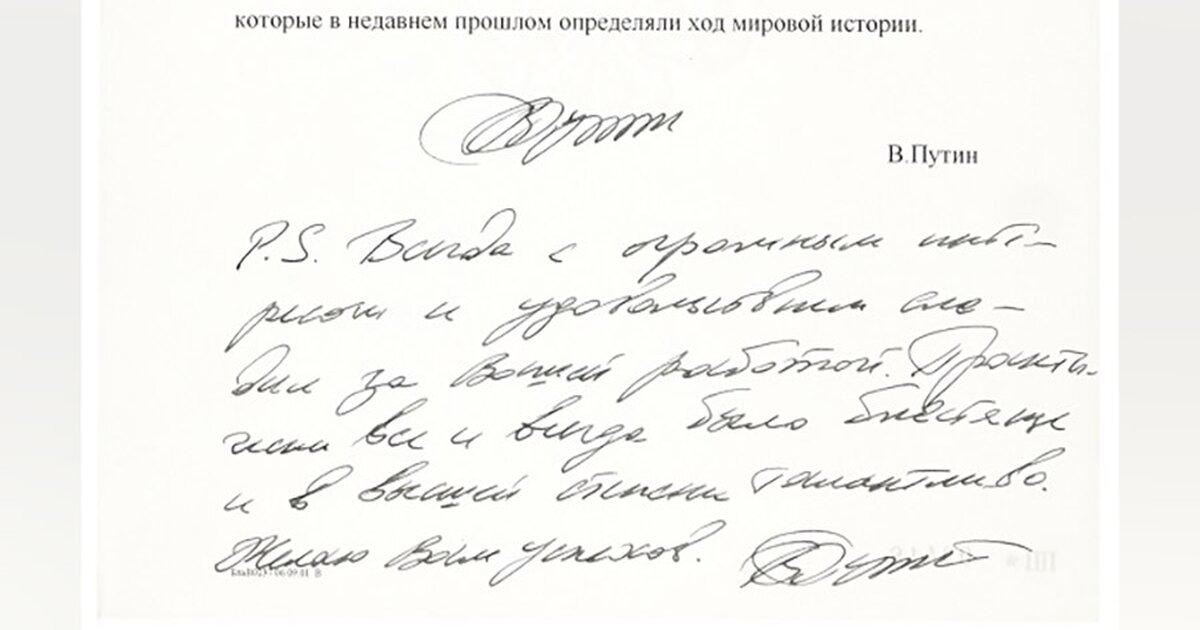 которые в недавнем прошлом определяли ход мировой истории.
В.Путин
P.S. Всегда с огромным инте-
ресом и удовольствием сле-
дил за Вашей работой. Практи-
чески все и всегда было блестяще
и в высшей степени талантливо.
Желаю Вам успехов.